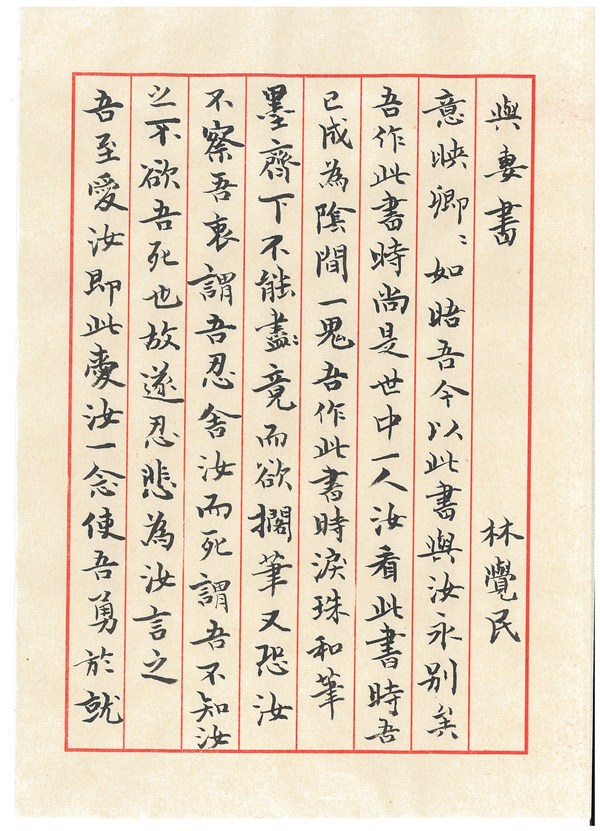 與妻書 林覺民
意映卿〻如晤吾今以此書與汝永別矣
吾作此書時尚是世中一人汝看此書時吾
已成為陰間一鬼吾作此書時淚珠和筆
墨齊下不能盡竟而欲擱筆又恐汝
不察吾衷謂吾忍舍汝而死謂吾不知汝
之不欲吾死也故遂忍悲為汝言之
吾至愛汝即此愛汝一念使吾勇於就